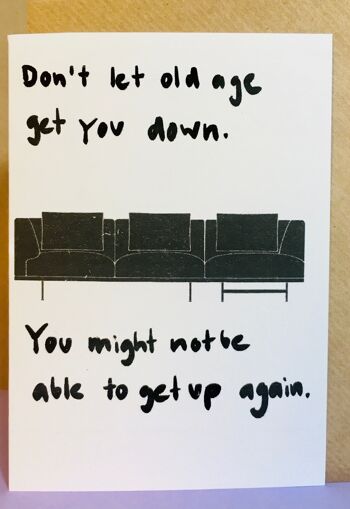 Don't let old age
get you down.
You might not be
able to get up again.